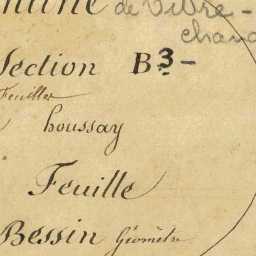 de Vibre-
Section B3-
Feuilles
houssay
Feuille
Bessin Géomètre